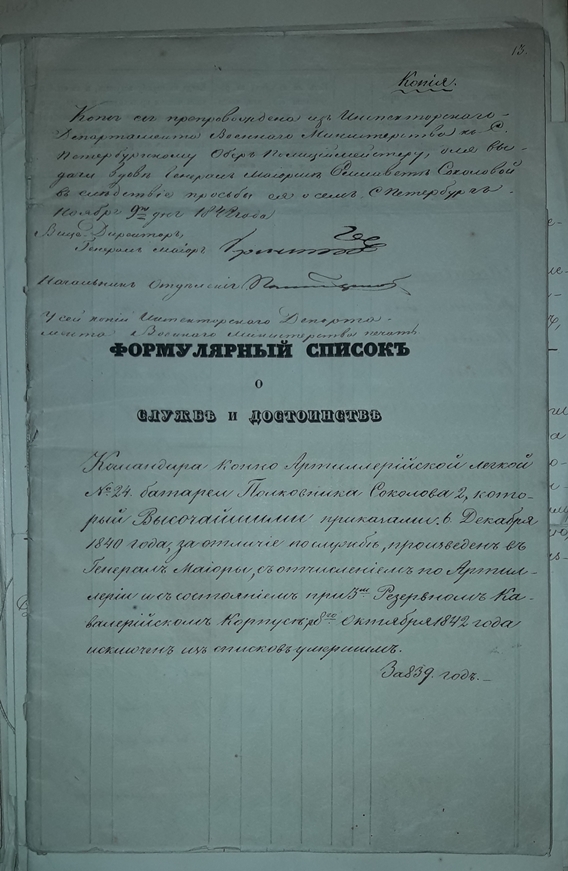 13.
Копія.
Копія сія препровождена изъ Инспекторскаго
Департамента Военнаго Министерства къ С.
Петербургскому Оберъ Полицiймейстеру, для вы-
дачи вдовѣ Генералъ Маіорши Елизаветѣ Соколовой
въ слѣдствіе просьбы ея о семъ, С Петербургъ
Ноября 9го дня 184 года
Вице Директоръ
Генералъ Маіоръ
Начальникъ Отдѣленія
У сей копіи Инспекторскаго Департа-
мента Военнаго Министерства печать
ФОРМУЛЯРНЫЙ СПИСОКЪ
О
СЛУЖБѢ И ДОСТОИНСТВѢ
Командира конно Артиллерійской легкой
№ 24. батареи Полковника Соколова 2, кото-
рый Высочайшими приказами: 6 Декабря
1840 года, за отличіе по службѣ, произведенъ въ
Генералъ Маіоры, съ отчисленіемъ по Артил-
леріи и съ состояніемъ при 3мъ Резервномъ Ка-
валерійскомъ Корпусѣ; Октября 1842 года
исключенъ изъ списковъ умершимъ.
За 839. годъ.